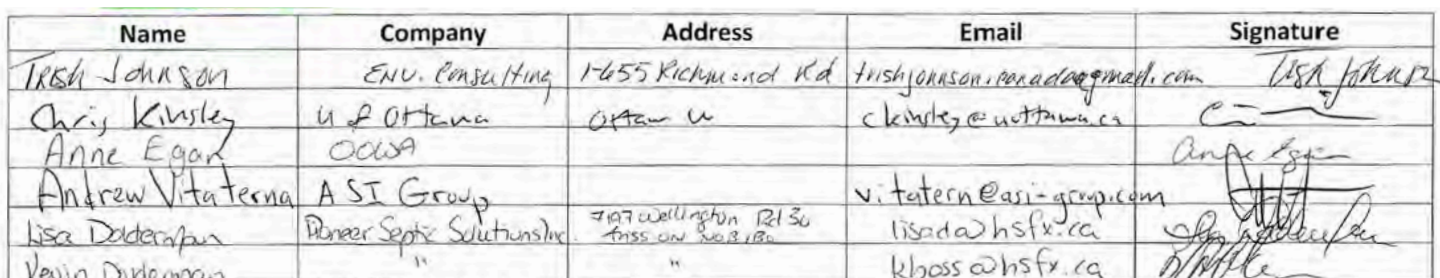 Name Company Address Email Signature
Trish Johnson ENV. Consulting 1-655 Richmond Rd trishjohnson.canada@gmail.com Trish Johnson
Chris Kinsley U of Ottawa Ottawa U ckinsley@uottawa.ca
Anne Egan OOWA Anne Egan
Andrew Vitaterna ASI Group vitatern@asi-group.com
Lisa Pioneer Septic Solutions Inc. Wellington Rd 30
lisad@hsfx.ca
Kevin " " kboss@hsfx.ca